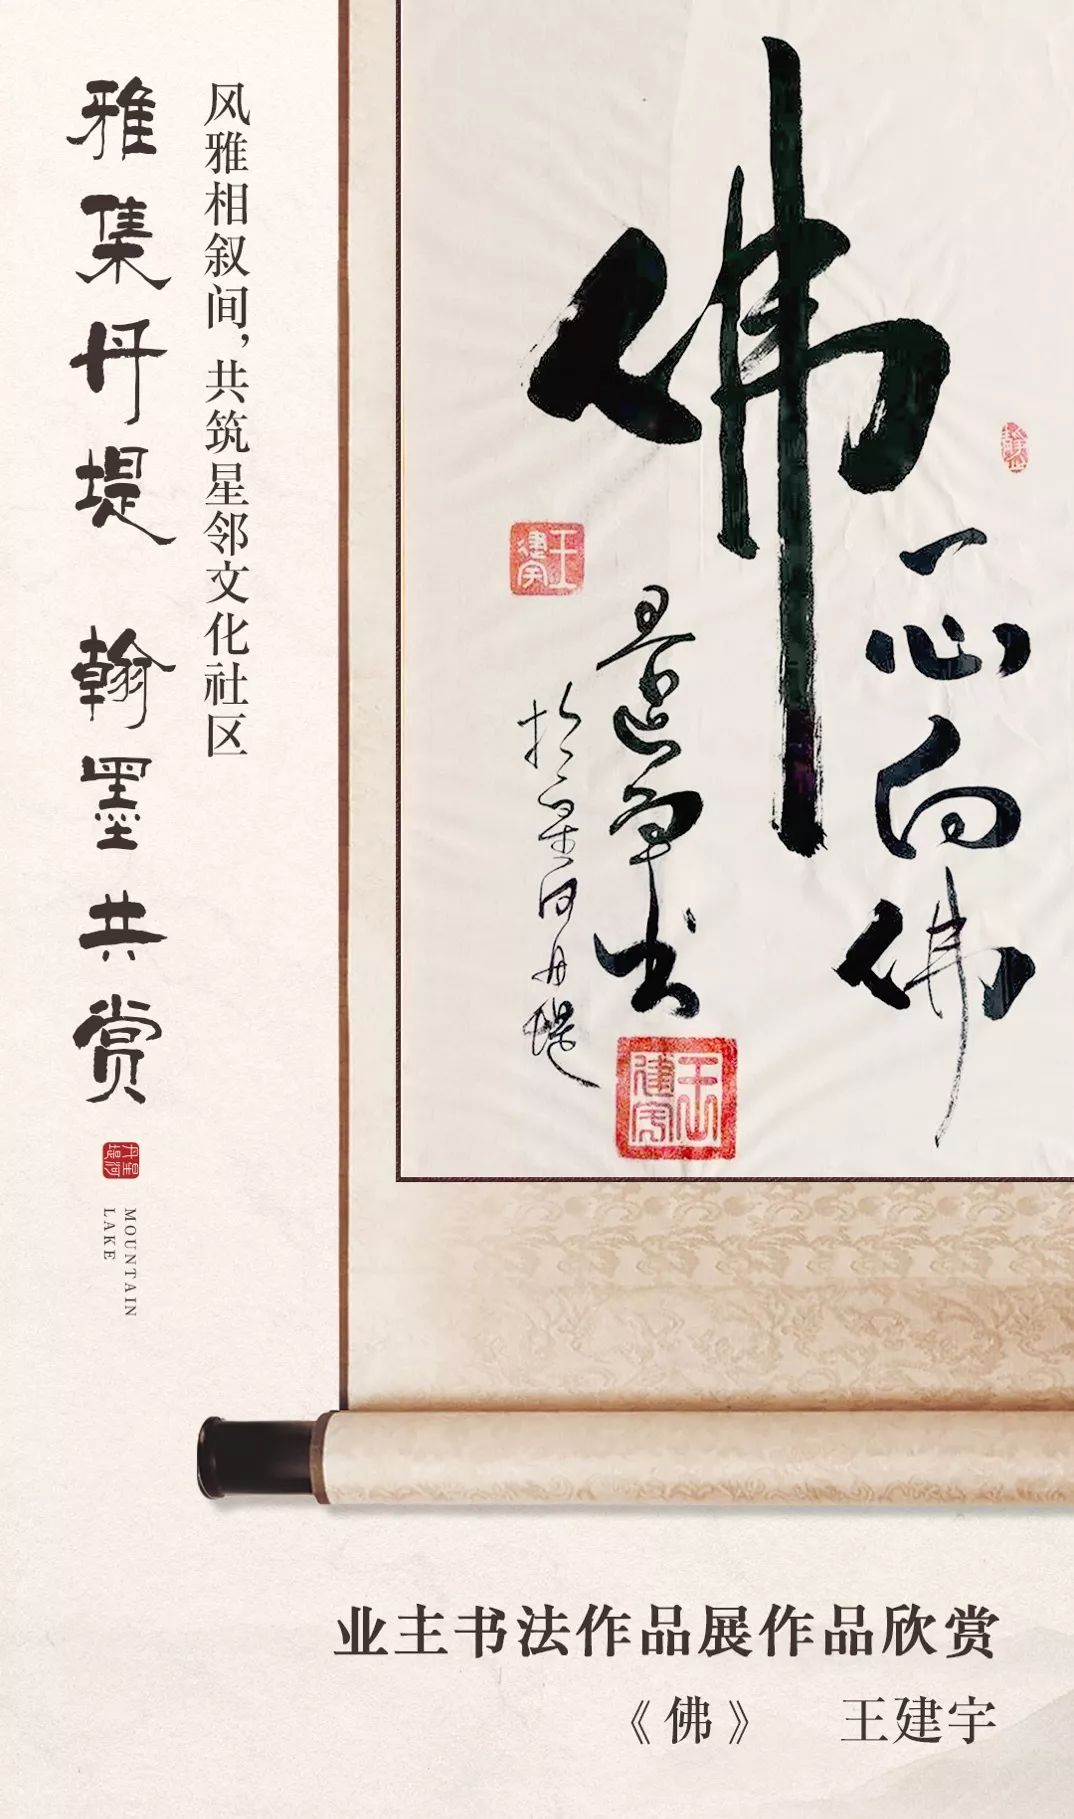 雅集丹堤 翰墨共赏
风雅相叙间，共筑星邻文化社区
星河丹堤
MOUNTAIN
LAKE
佛
一心向佛
书
于星河丹堤
王建宇
王建宇
业主书法作品展作品欣赏
《佛》 王建宇